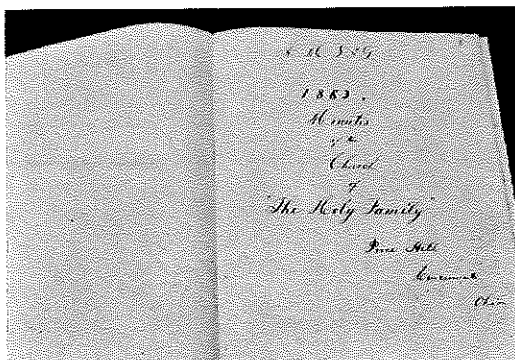 1883.
Minutes
of the
Church
of
"The Holy Family"
Price Hill
Cincinnati
Ohio